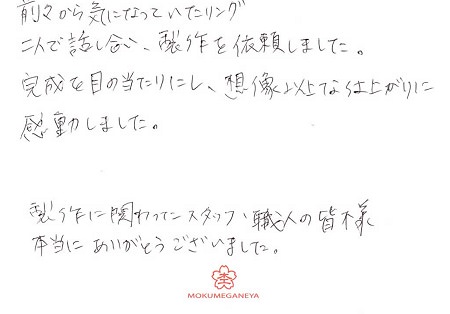 前々から気になっていたリング
二人で話し合い、製作を依頼しました。
完成を目の当たりにし、想像以上な仕上がりに
感動しました。
製作に関わってたスタッフ、職人の皆様
本当にありがとうございました。
杢
MOKUMEGANEYA